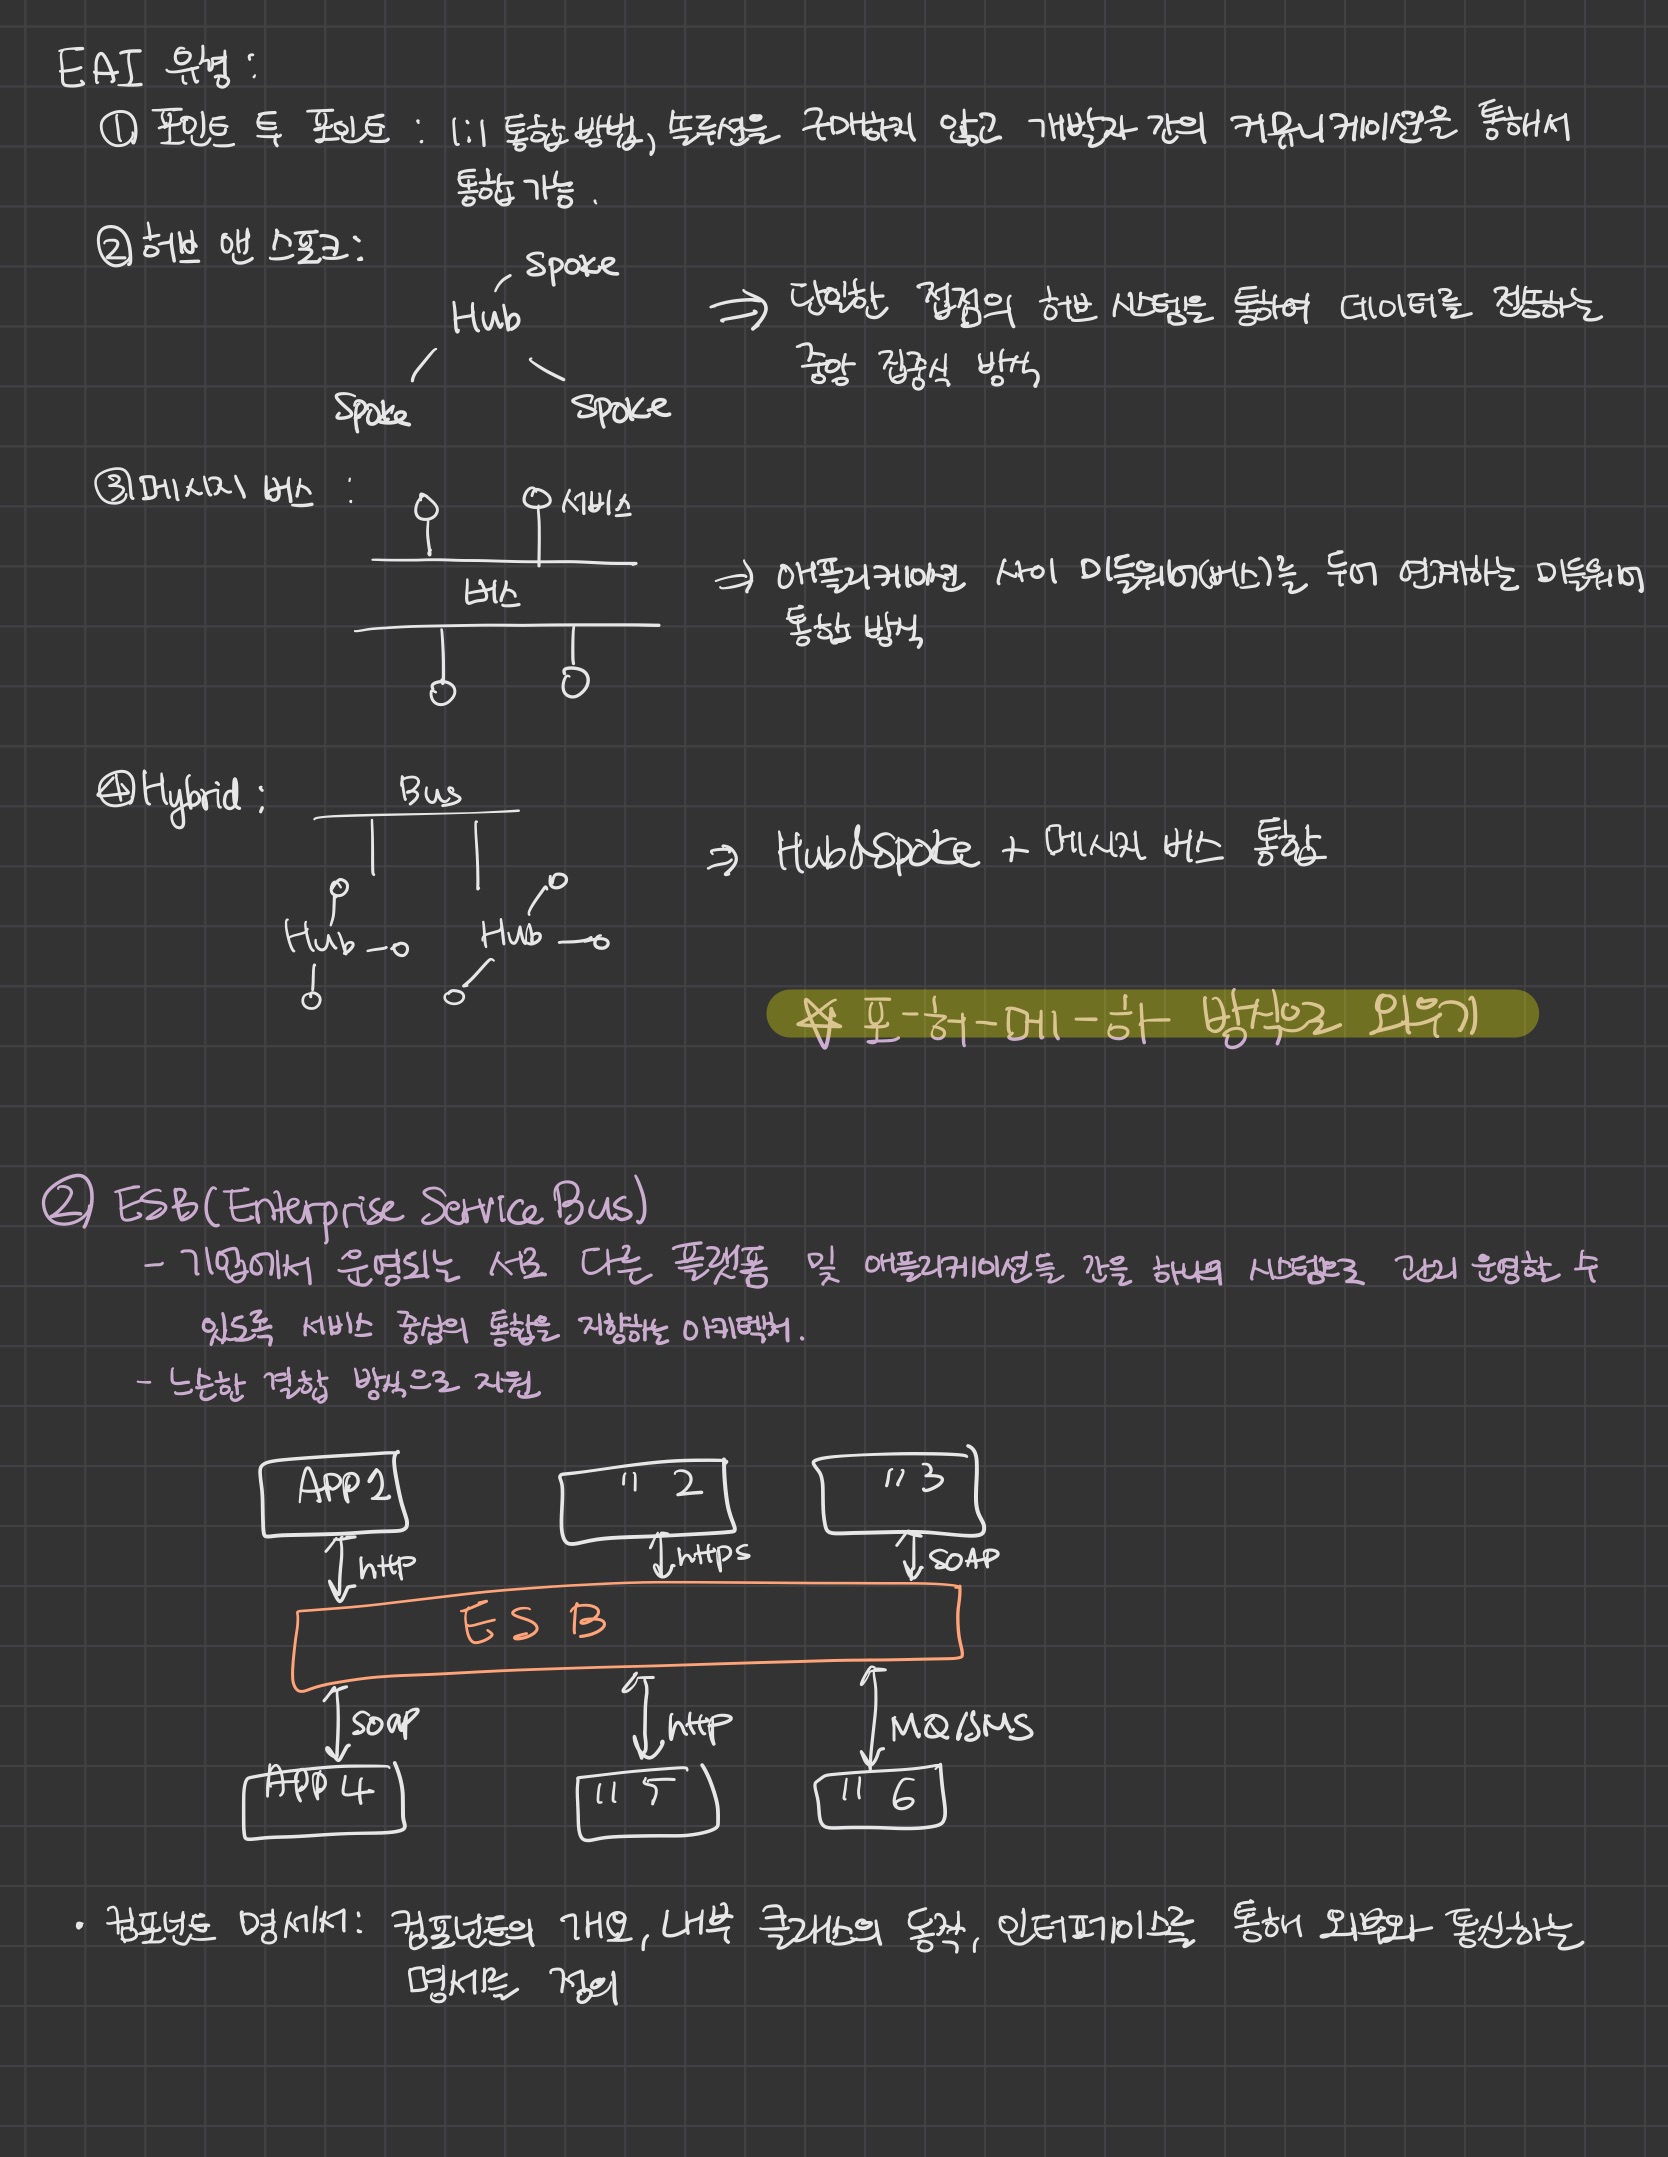 EAI 유형 :
① 포인트 투 포인트 : 1:1 통합 방법, 솔루션을 구매하지 않고 개발자 간의 커뮤니케이션을 통해서
통합 가능.
② 허브 앤 스포크 :
Spoke
Hub
Spoke
Spoke
⇒ 단일한 접점의 허브 시스템을 통하여 데이터를 전송하는
중앙 집중식 방식
③ 메시지 버스 :
서비스
버스
⇒ 애플리케이션 사이 미들웨어(버스)를 두어 연계하는 미들웨어
통합 방식
④ Hybrid :
Bus
Hub
Hub
⇒ Hub&Spoke + 메시지 버스 통합
☆ 포-허-메-하 방식으로 외우기
② ESB(Enterprise Service Bus)
- 기업에서 운영되는 서로 다른 플랫폼 및 애플리케이션들 간을 하나의 시스템으로 관리 운영할 수
있도록 서비스 중심의 통합을 지향하는 아키텍처.
- 느슨한 결합 방식으로 지원
APP 1
" 2
" 3
http
https
SOAP
ESB
soap
http
MQ/JMS
APP 4
" 5
" 6
· 컴포넌트 명세서 : 컴포넌트의 개요, 내부 클래스의 동작, 인터페이스를 통해 외부와 통신하는
명세를 정의